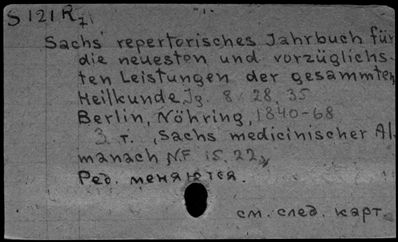 S 121 R 71
Sachs' repertorisches Jahrbuch für
die neuesten und vorzüglichs-
ten Leistungen der gesammten
Heilkunde, Jg. 8, 28, 35
Berlin, Nöhring, 1840-68
3 т. , Sachs medicinischer Al-
manach N.F. 15. 22,
Ред. меняются.
см. след. карт.